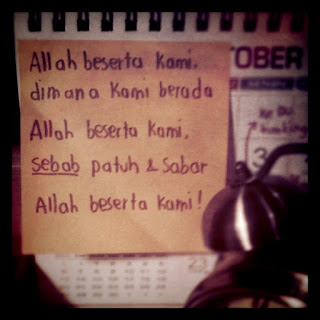 Allah beserta kami.
dimana kami berada
Allah beserta kami,
sebab patuh & sabar
Allah beserta kami!
TOBER
23